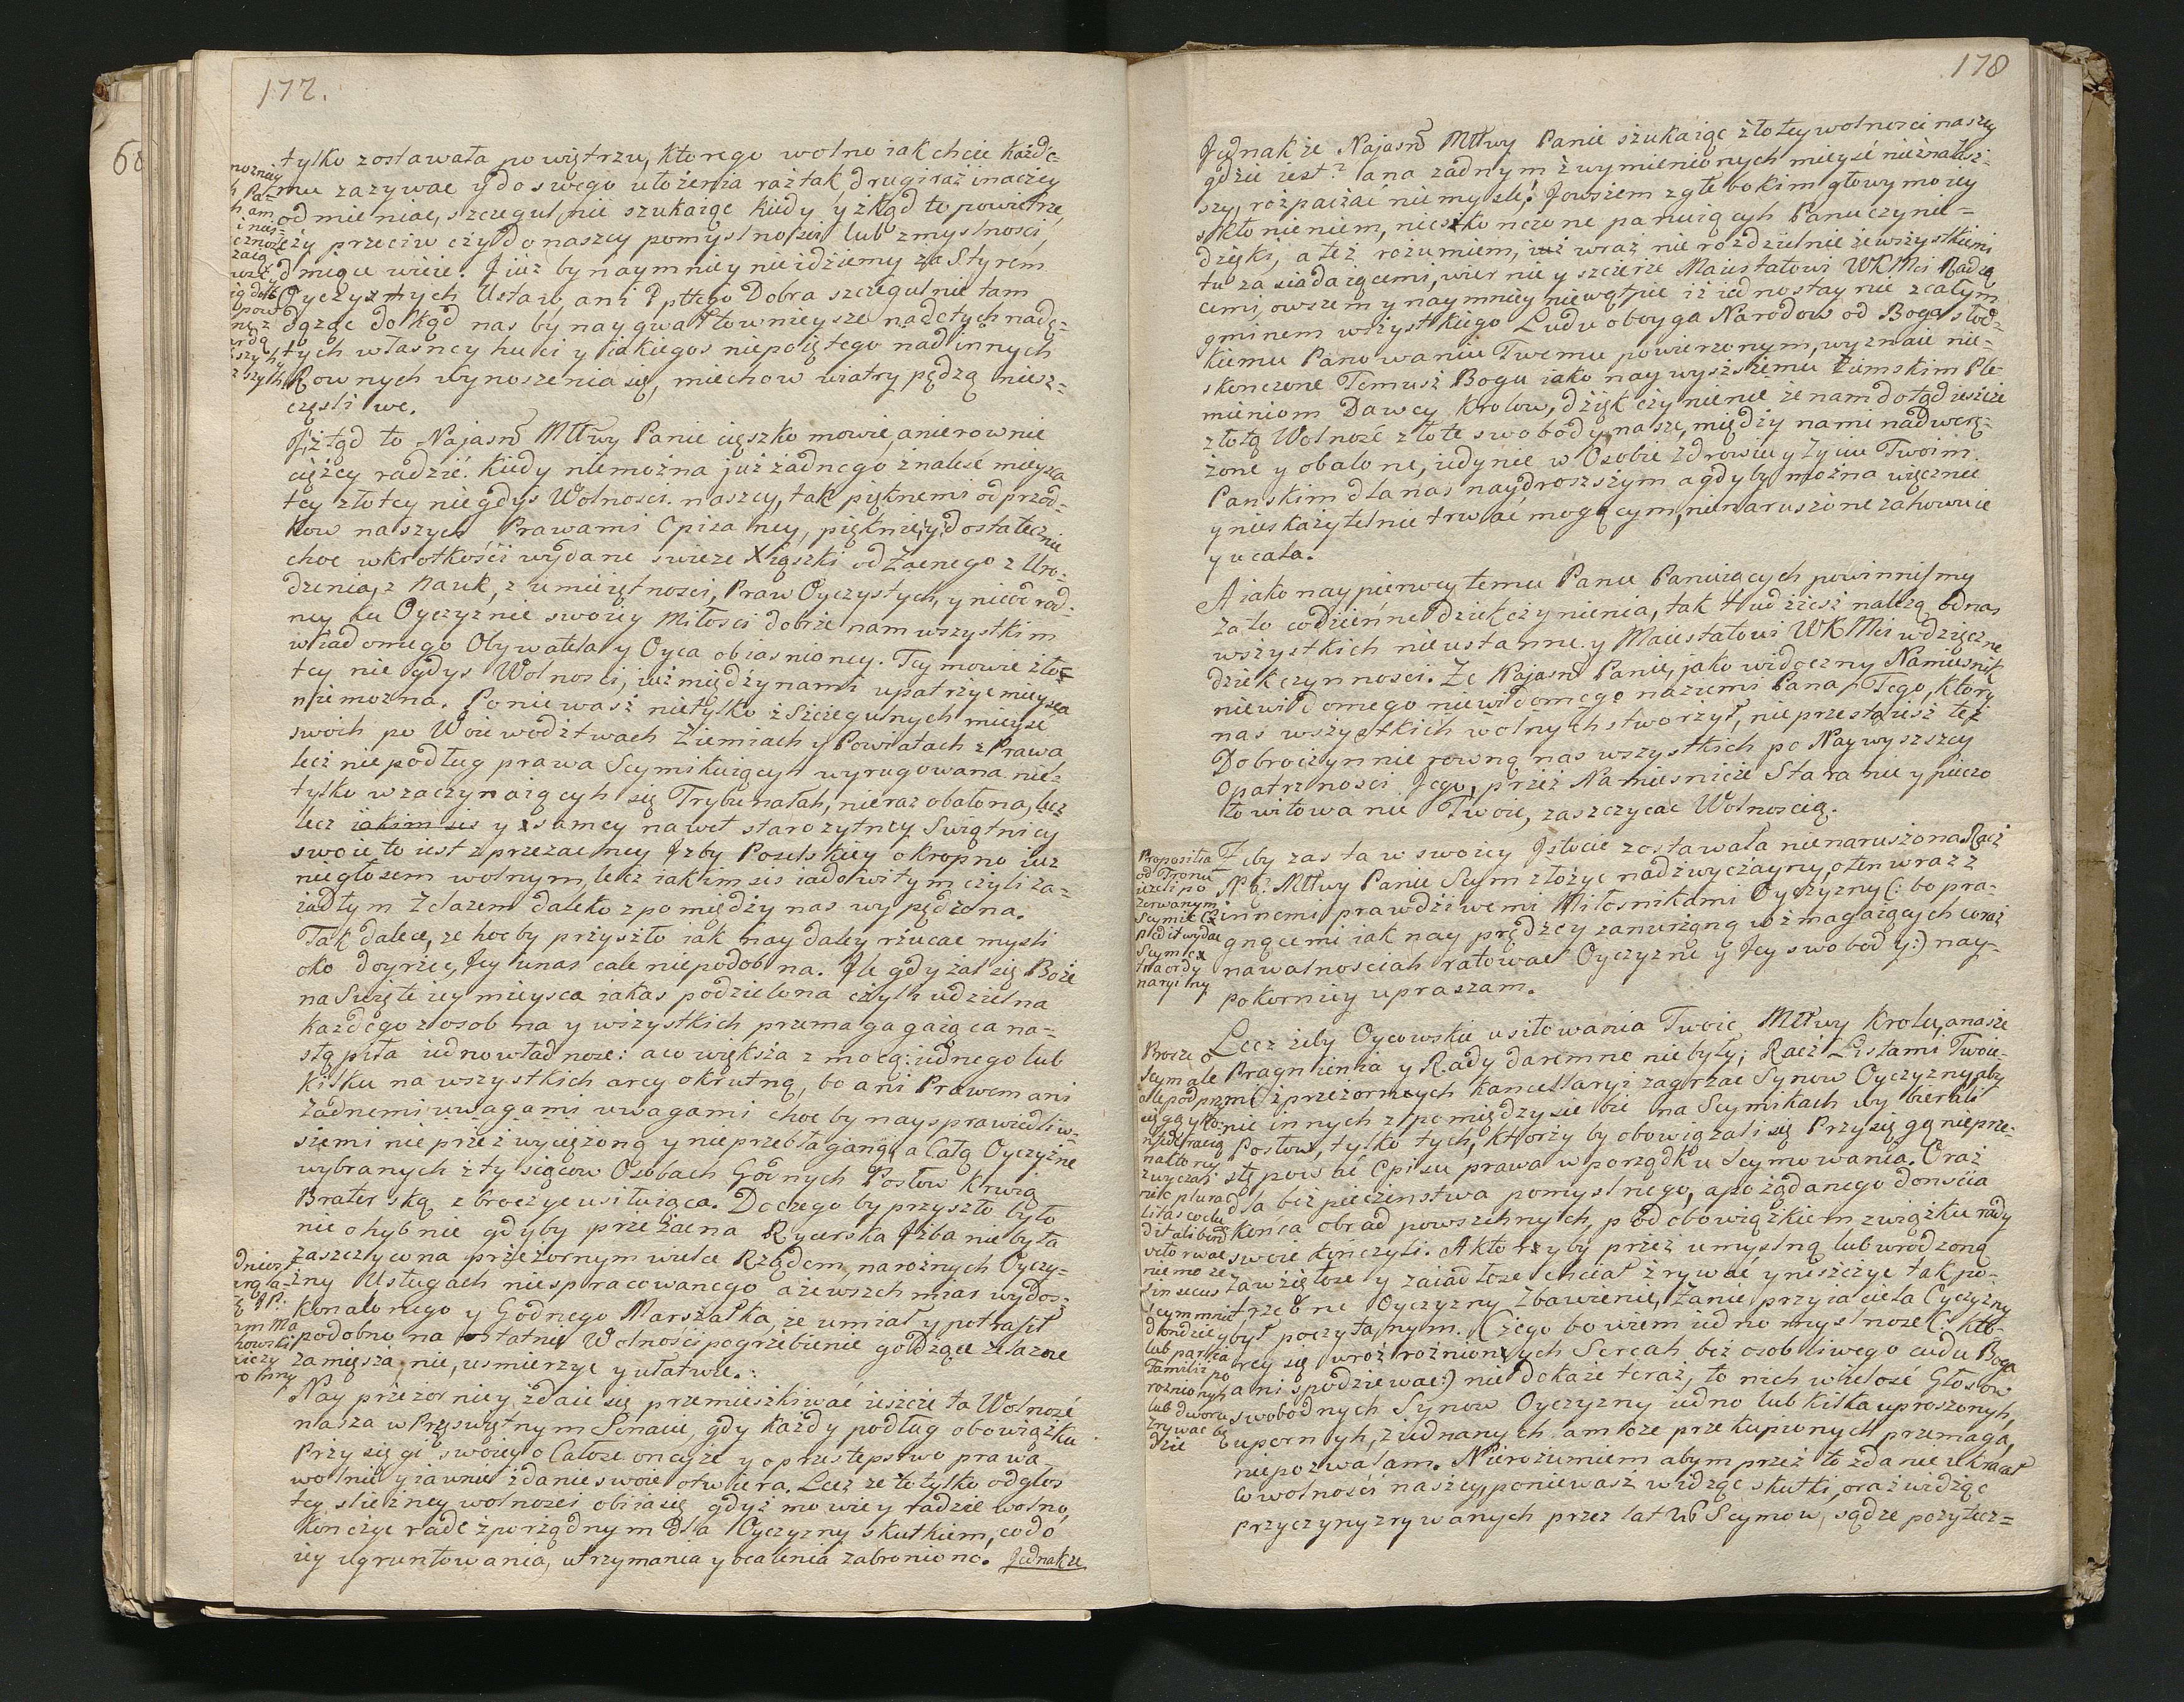 177.
tylko zostawała powiętrzu, ktorego wolno iak chcie każde-
mu zazywac y do swego ułożenia raz tak drugi raz inaczey
odmieniac, szczegul, nie szukaiąc kiedy y zkąd to powietrze,
czy przeciw czy do naszey pomyslnosci lub zmyslnosci,
dmiące wieie. J iuz by naymniey nie idziemy za Styrem
Oyczyznych Ustaw, ani dpttego Dobra szczegulnie tam
dąząc dokąd nas by naygwałtownieysze nadetych nadę-
tych własney huci y iakiegos niepoiętego nad innych
Rownych wynoszenia się, miechow wiatry pędzą niesz-
częsliwe.
J ztąd to Najasn Mttwy Panie cięszko mowie, a nierownie
cięzey radzić. Kiedy niemożna już żadnego znaleść mieysca
tey złotey niegdys Wolnosci naszey, tak pięknemi od przod-
kow naszych Prawami Opisaney, pięknie, y dostatecznie
choc wkrotkości wydane swieze Xiąszki od Zacnego z Uro-
dzenia, z Nauk, z umieiętnosci, Praw Oyczystych, y nieod rod-
ney ku Oyczyznie swoiey Miłosci dobrze nam wszystkim
wiadomego Obywatela y Oyca obiasnioney. Tey mowie zło-
tey nie gdys Wolnosci, iuz między nami upatrzyc mieysca
nie mozna. Poniewasz nietylko z Szczegulnych mieysc
swoich po Woiewodztwach Ziemiach y Powiatach z Prawa
lecz nie podług prawa Seymikuiących wyrugowana nie-
tylko wzaczynaiących się Trybunałah, nieraz obalona, lecz
lecz iakimsis y z samey nawet starozytney Swiątnicy
swoie to iest z przezacney Jzby Poselskiey okropno iuz
nie głosem wolnym, lecz iakimsis iadowitym czyli za-
iadłym Zelazem daleko z pomiędzy nas wypędzona.
Tak dalece, ze hocby przyszło iak naydaley rzucac mysli
oko doyrzec Jey unas cale niepodobna. Jle gdy żal się Boże
na Swięte iey mieysca iakas podzielona czyli udzielna
kazdego zosobna y wszystkich przemagagaiąca na-
stąpiła iednowładnosc: a co większa z mocą: iednego lub
kilku na wszystkich arcy okrutną, bo ani Prawem ani
żadnemi uwagami uwagami choc by naysprawiedliw-
szemi nieprzezwyciężoną y nieprzebłaganą, a Całą Oyczyznę
wybranych z tysięcow Osobach Godnych Posłow krwią
Braterską zbroczyc usiłuiąca. Do czego by przyszło było
nieohybnie gdyby przezacna Rycerska Jzba nie była
zaszczycona przezornym wielce Rządem, narożnych Oyczy-
zny Usługach niespracowanego a zewszech miar wydos-
konalonego y Godnego Marszałka, że umiał y potrafił
podobno na ostatnie Wolności pogrzebienie godzące zelazne
zamięszanie, usmierzyc y ułatwic.
Nay przezorniey zdaie się przemieszkiwać ieszcze ta Wolność
nasza w Przeświętnym Senacie, gdy każdy podług obowiązku
Przysięgi swoiey o Całosc oneyże y oprzestępstwo prawa
wolnie y iawnie zdanie swoie otwiera. Lecz ze to tylko odgłos
tey slicżney wolnosci obiia się gdyż mowic y radzic wolno,
konczyc radę z porządnym dla Oyczyzny skutkiem, co do
iey ugruntowania, utrzymania y ocalenia zabroniono. Jednakze
178
Jednakże Najasn Mttwy Panie szukaiąc złotey wolnosci naszey
gdzie iest? a na zadnym z wymienionych mieysc nieznalasz-
szy, rozpaczać niemyslę! Jowszem z głebokim głowy moiey
skłonieniem, nieskończone panuiących Panu czynie-
dzięki, a też rozumiem, iuż wraz nierozdzielnie zewszystkimi
tu zasiadaiącemi, wiernie y szczerze Maiestatowi WKMci Radzą
cemi, owszem y naymniey niewątpie iż iednostaynie zcałym
gminem wszystkiego Ludu oboyga Narodow od Boga słod-
kiemu Panowaniu Twemu powierzonym, wyznaie nie-
skonczone Temusz Bogu iako naywyższemu Ziemskim Ple-
mieniom Dawcy Krolow, dzięk czynienie że nam dotąd ieszcze
złotą Wolność złote swobody nasze, między nami nadwerę-
żone y obalone, iedynie w Osobie zdrowiu y Życiu Twoim
Panskim dla nas naydroszszym a gdyby można wiecznie
y nieskazytelnie trwać mogącym, nienaruszone zahowuie
y ucala.
A iako naypierwey temu Panu Panuiących powinnismy
zato codzienne dziekczynienia, tak tudziesz należą od nas
wszystkich nieustanne y Maiestatowi WKMci wdzięczne
dziekczynnosci. Ze Najasn Panie, jako widoczny Namiesnik
niewidomego niewidomego naziemi Pana, Tego, ktory
nas wszystkich wolnych stworzył, nie przestaiesz też
Dobroczynnie rowną nas wszystkich po Naywyszszey
Opatrznosci Jego, przez Namiesnicze Staranie y pieczo
łowitowanie Twoie, zaszczycac Wolnoscią.
Propositia
od Tronu
iezeli po
zerwanym
Seymie
Zeby zas ta w swoiey Jstocie zostawała nienaruszona Racz
N. P: Mttwy Panie Seym złożyc nadzwyczayny, o ten wraz z
innemi prawdziwemi Miłosnikami Oyczyzny (: bo pra-
gnącemi iak nay prędzey zanurzoną wzmagaiących coraz
nawalnosciah ratowac Oyczyznę y Jey swobody:) nay-
pokorniey upraszam.
Lecz zeby Oycowskie usiłowania Twoie Mttwy Krolu, a nasze
Pragnienia y Rady daremne niebyły; Racz Listami Twoie-
mi z przezornych kancellaryi zagrzac Synow Oyczyzny, aby
nie innych z pomiędzy siebie na Seymikach wybierali
Posłow, tylko tych, ktorzy by obowiązali się Przysięgą nieprze-
stępować Opisu prawa w porządku Seymowania. Oraz
dla bezpieczenstwa pomyslnego, a pożądanego donscia
konca obrad powszehnych, pod obowiązkiem związku rady
swoie kończyli. A ktorzyby przez umyslną lub wrodzoną
zawziętosc y zaiadłosc chciał zrywać y niszczyc tak po-
trzebne Oyczyzny Zbawienie, Zanieprzyiaciela Oyczyzny
był poczytanym. (Czego bowiem iednomyslnosc (: kto-
rey się wroz rożnionych Sercah bez osobliwego cudu Boga
ani spodziewac:) nie dokaże teraz, to niech wielość Głosow
swobodnych Synow Oyczyzny iedno lub kilka uproszonyh,
upornyh, ziednanych, amoze przekupionych przemaga,
niepozwalam. Nierozumiem abym przez to zdanie ukracał
co wolności naszey, poniewasz widząc skutki, oraz widząc
przyczyny zrywanych przez lat Seymow, sądze pozytecz-